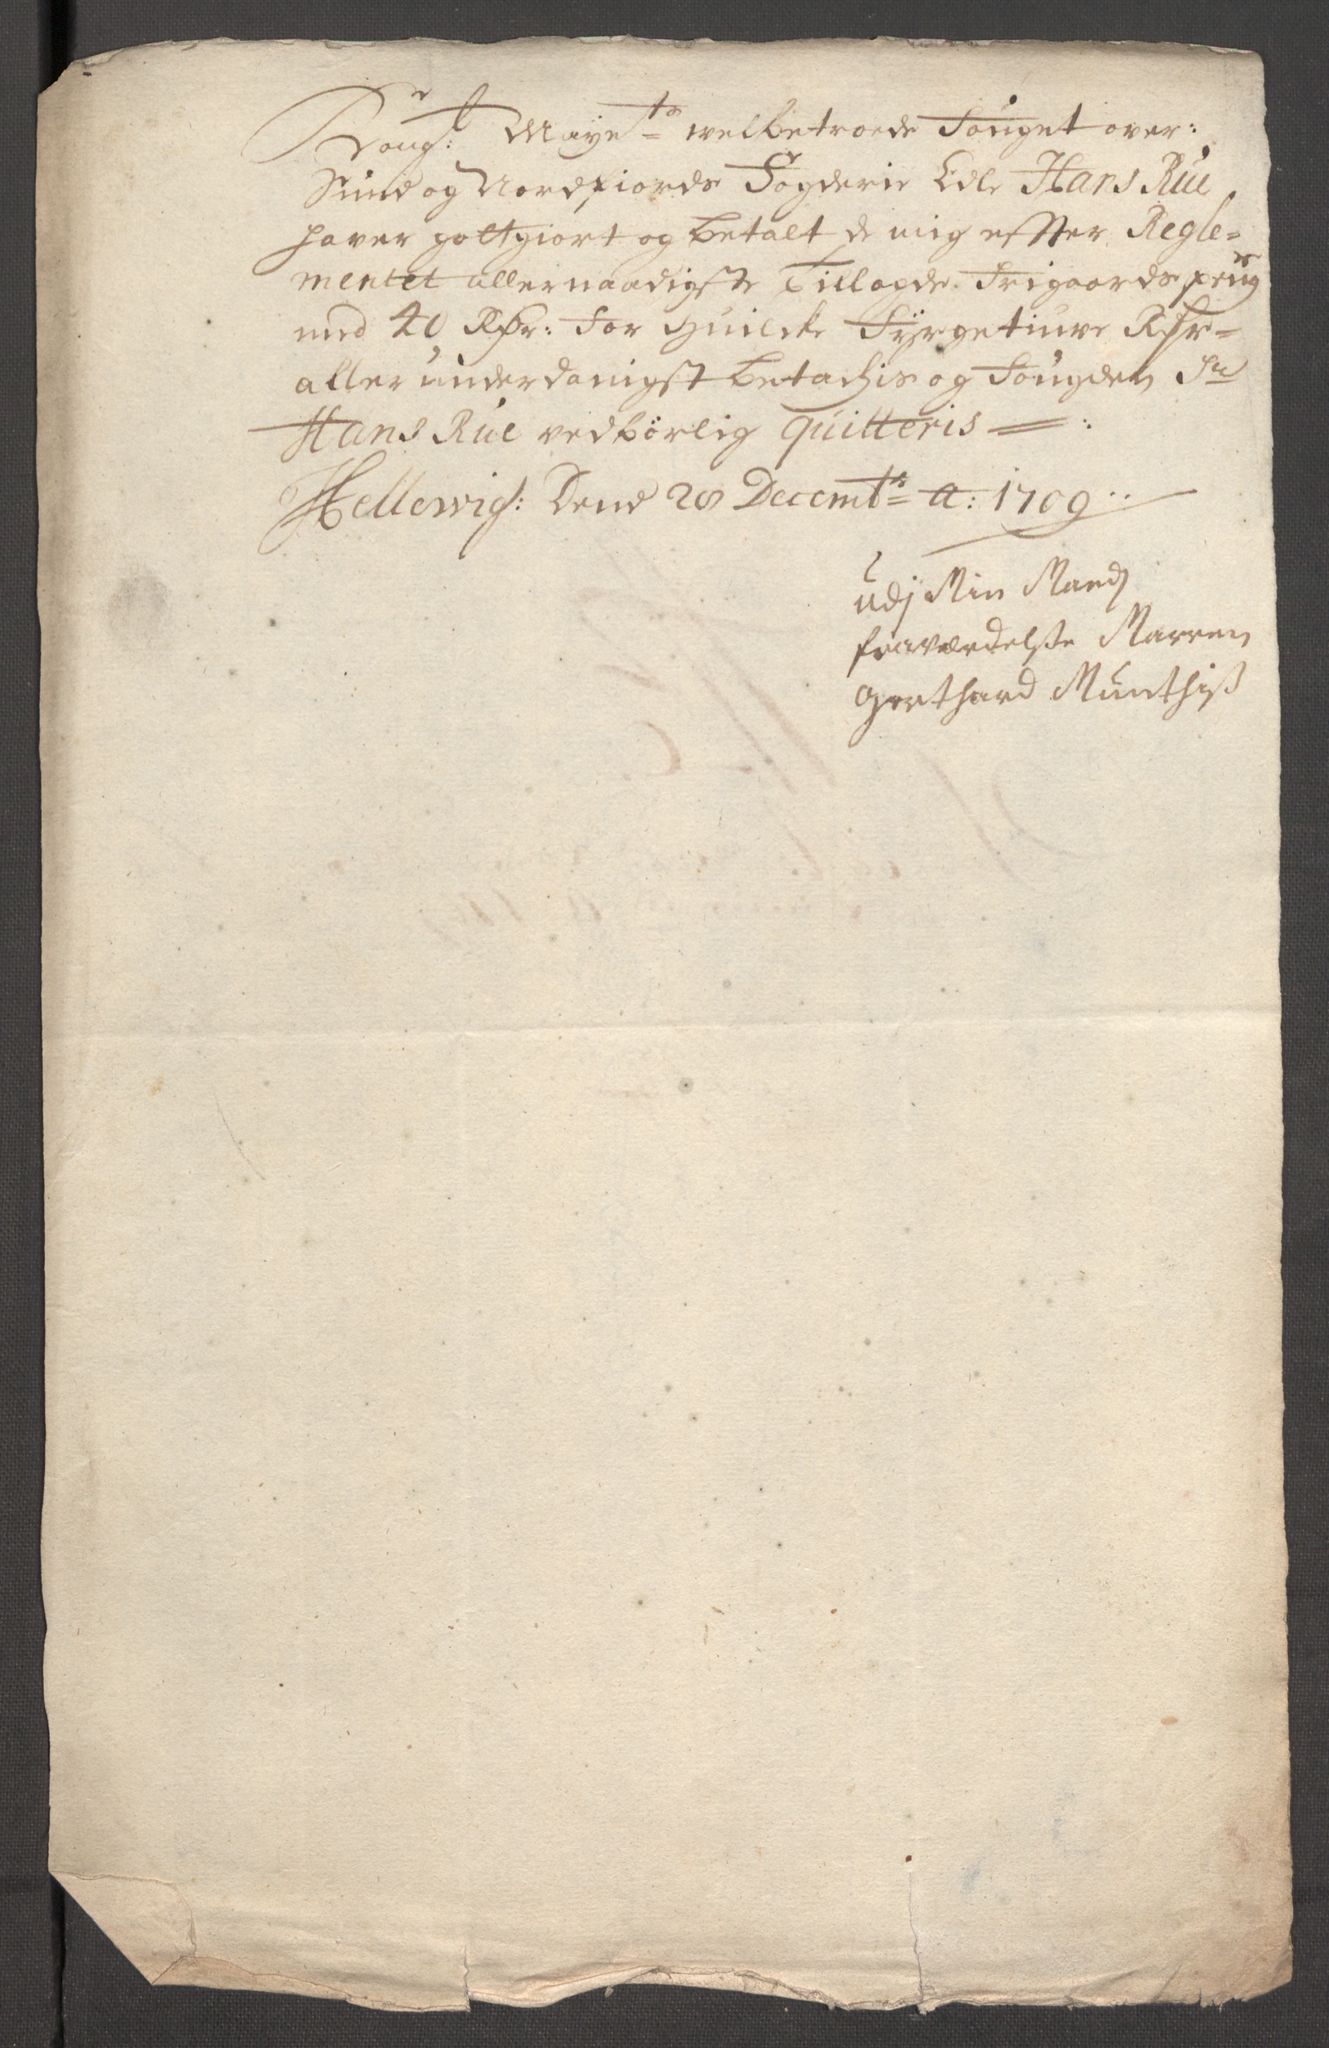 Kong: Maye^ts welbetroede Fouget over:
Sund og Nordfiords Fogderie Edle Hans Rüe
haver goltgiort og betalt de mig effter Regle=
mentet allernaadigste Tillagde Frigaards peng
med 40 Rdr: For Huilcke Fyrgetiuve Rdr=
aller underdanigst betachis og Fougden Sr
Hans Rüe vedbørlig quitteris =:
Hellewig: Dend 28 Decemb: A: 1709..
Udj Min Mandz
fraværdelsse Marren
Gerthard Munthis